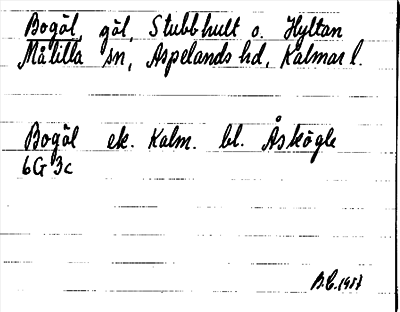 Bogöl, göl, Stubbhult o. Hyltan
Målilla sn, Aspelands hd, Kalmar l.
Bogöl ek. Kalm. bl. Åskögle
6G 3c